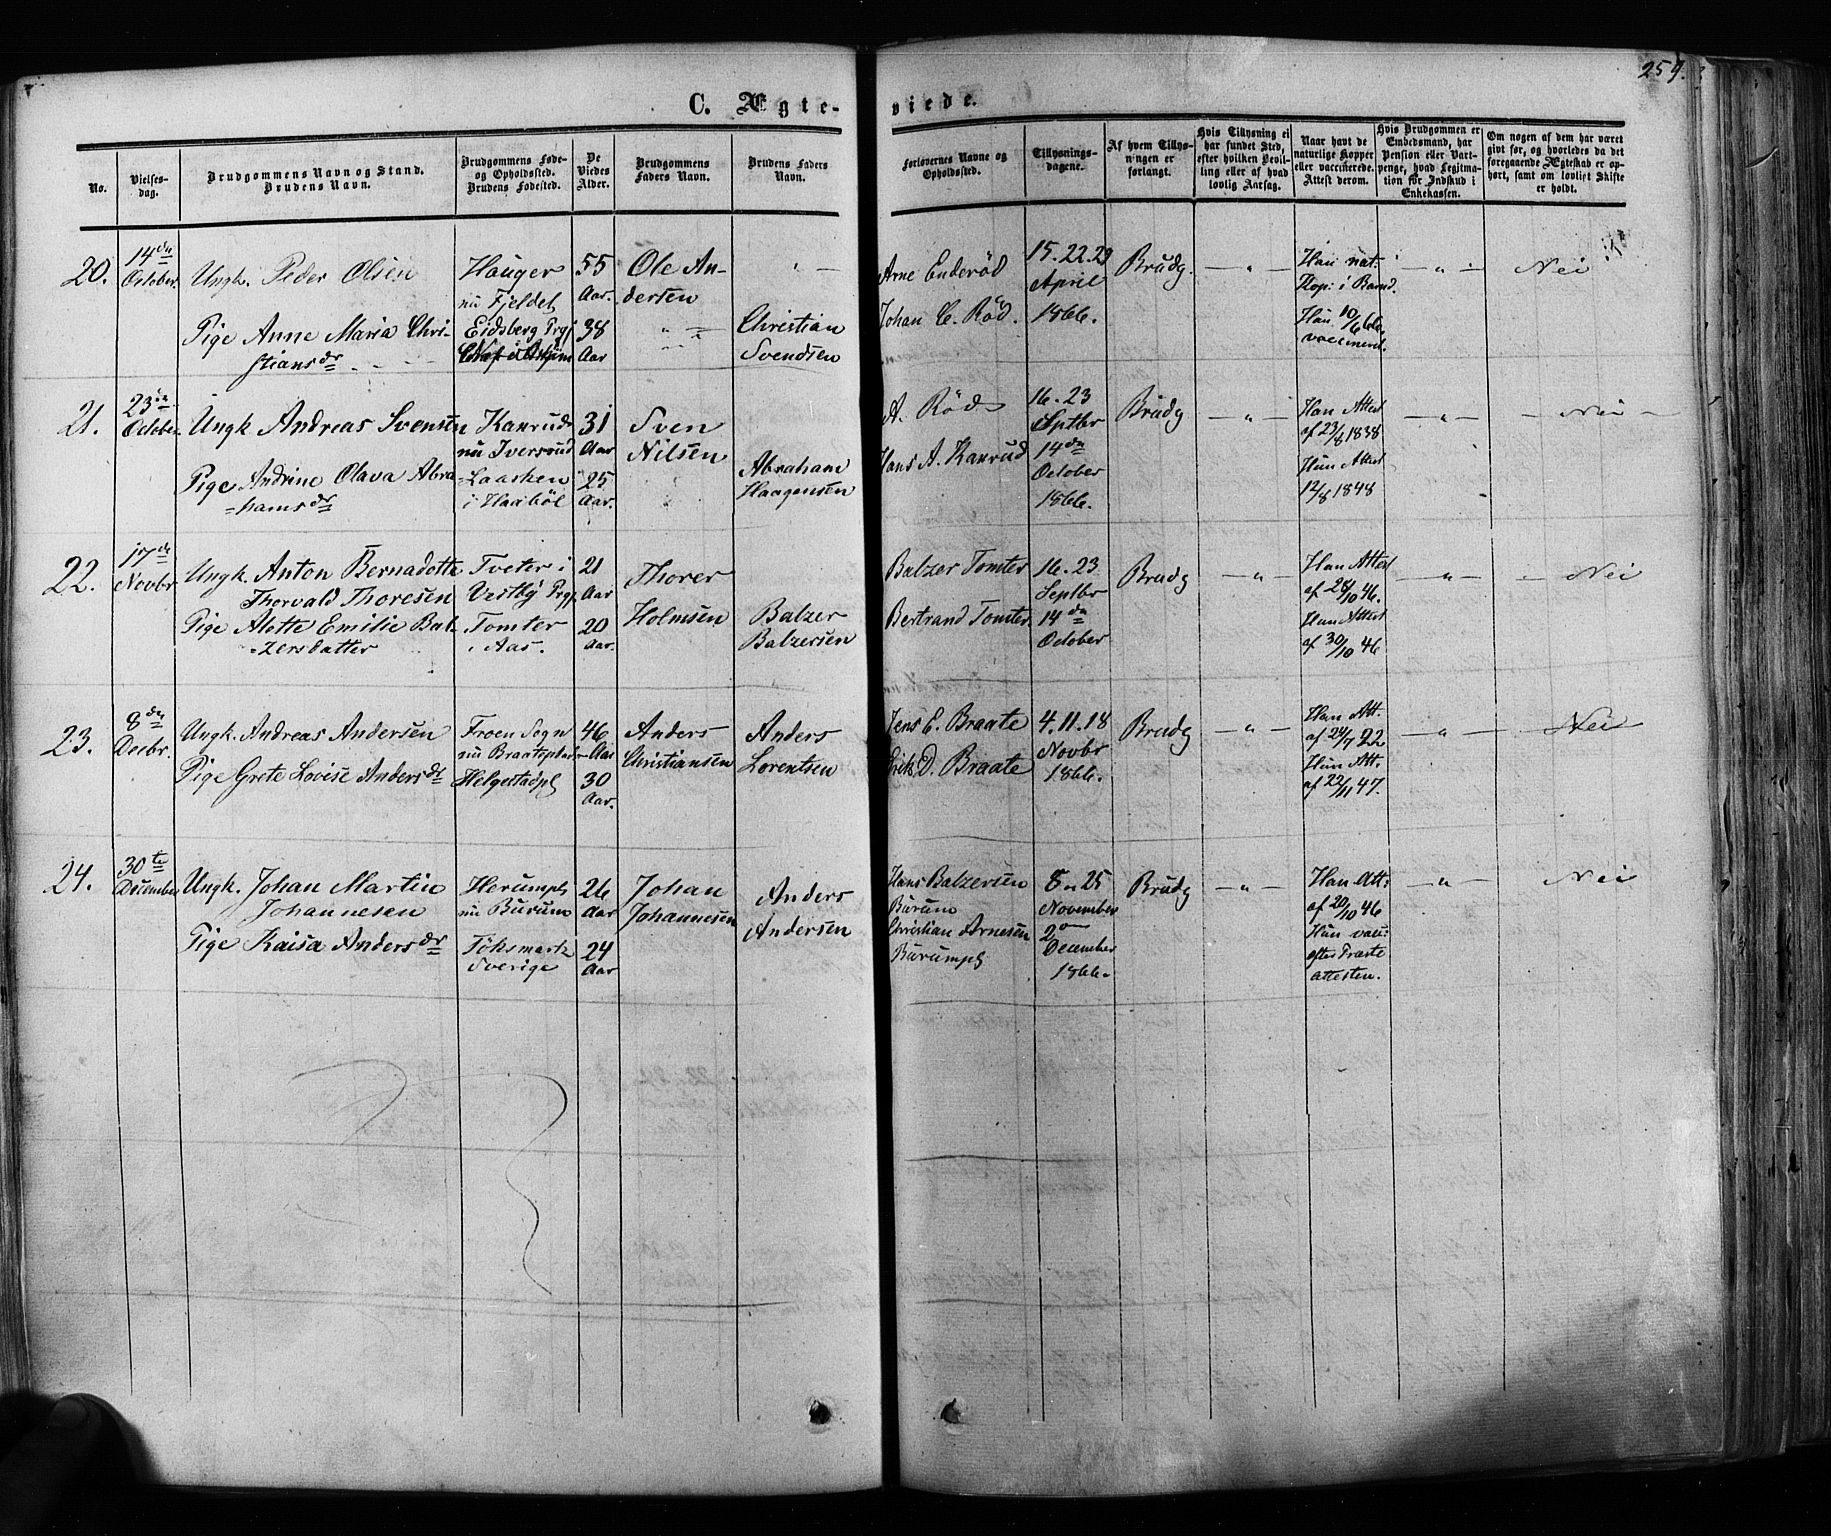 259.
C. Ægte-
viede.
No.
Vielses-
dag.
Brudgommens Navn og Stand.
Brudens Navn.
Brudgommens Føde-
og Opholdssted.
Brudens Fødested.
De
Viedes
Alder.
Brudgommens
Faders Navn.
Brudens Faders
Navn.
Forlovernes Navne og
Opholdssted.
Tillysnings-
dagene.
Af hvem Tillys-
ningen er
forlangt.
Hvis Tillysning ei
har fundet Sted,
efter hvilken Bevil-
ling eller af hvad
lovlig Aarsag.
Naar havt de
naturlige Kopper
eller vaccinerede.
Attest derom.
Hvis Brudgommen er
Embedsmand, har
Pension eller Vart-
penge, hvad Legitima-
tion for Indskud i
Enkekassen.
Om nogen af dem har været
gift før, og hvorledes da det
foregaaende Ægteskab er op-
hørt, samt om lovligt Skifte
er holdt.
20.
14de
October
Ungk. Peder Olsen
Pige Anne Maria Chri-
stiansdr
Hauger
nu Fjeldet
Eidsberg Prgj
55
Aar.
38
Aar
Ole An-
dersen
Christian
Svendsen
Arne Enderød
Johan C. Rød.
15. 22. 29
April
1866.
Brudg.
— " —
Han nat.
Kop: i Barnd.
Hun 10/6 66
vaccineret.
— " —
Nei
21.
23de
October
Ungk Andreas Svensen
Pige Andrine Olava Abra
=hamsdr
Kanrud
nu Iversrud
Laarken
i Haabøl
31
Aar
25
Aar.
Sven
Nilsen
Abraham
Haagensen
A. Rød
Hans A. Kanrud
16. 23
Septbr
14de
October
1866.
Brudg
— " —
Han Attest
af 23/8 1838
Hun Attest
12/8 1848
— " —
— Nei —
22.
17de
Novbr
Ungk. Anton Bernadotte
Thorvald Thoresen
Pige Alette Emilie Bal-
=zersdatter
Tveter i
Vestby Prgj
Tomter
i Aas.
21
Aar
20
Aar.
Thorer
Holmsen
Balzer
Balzersen
Balzer Tomter
Bertrand Tomter
16. 23
Septbr
14de
October
Brudg
— " —
Han Attest
af 28/10 46.
Hun Attest
af 30/10 46
— " —
— Nei
23.
8de
Decbr.
Ungk. Andreas Andersen
Pige Grete Lovise Andersdr
Froen Sogn
nu Braateplads
Helgestadpl
46
Aar
30
Aar.
Anders
Christiansen
Anders
Lorentsen
Jens E. Braate
Erik D. Braate
4. 11. 18
Novbr
1866.
Brudg
— " —
Han Att.
af 24/7 22
Hun Att.
af 22/11 47.
— " —
Nei
24.
30te
December
Ungk. Johan Martin
Johannesen
Pige Kaisa Andersdr
Herumpl
nu Burum
Töksmark
Sverige
26
Aar
24
Aar
Johan
Johannesen
Anders
Andersen
Hans Balzersen
Burum
Christian Arnesen
Burumpl
8 " 25
November
2
December
1866.
Brudg
— " —
Han Att:
af 20/10 46
Hun vacc:
efter Præste
attesten.
— " —
Nei